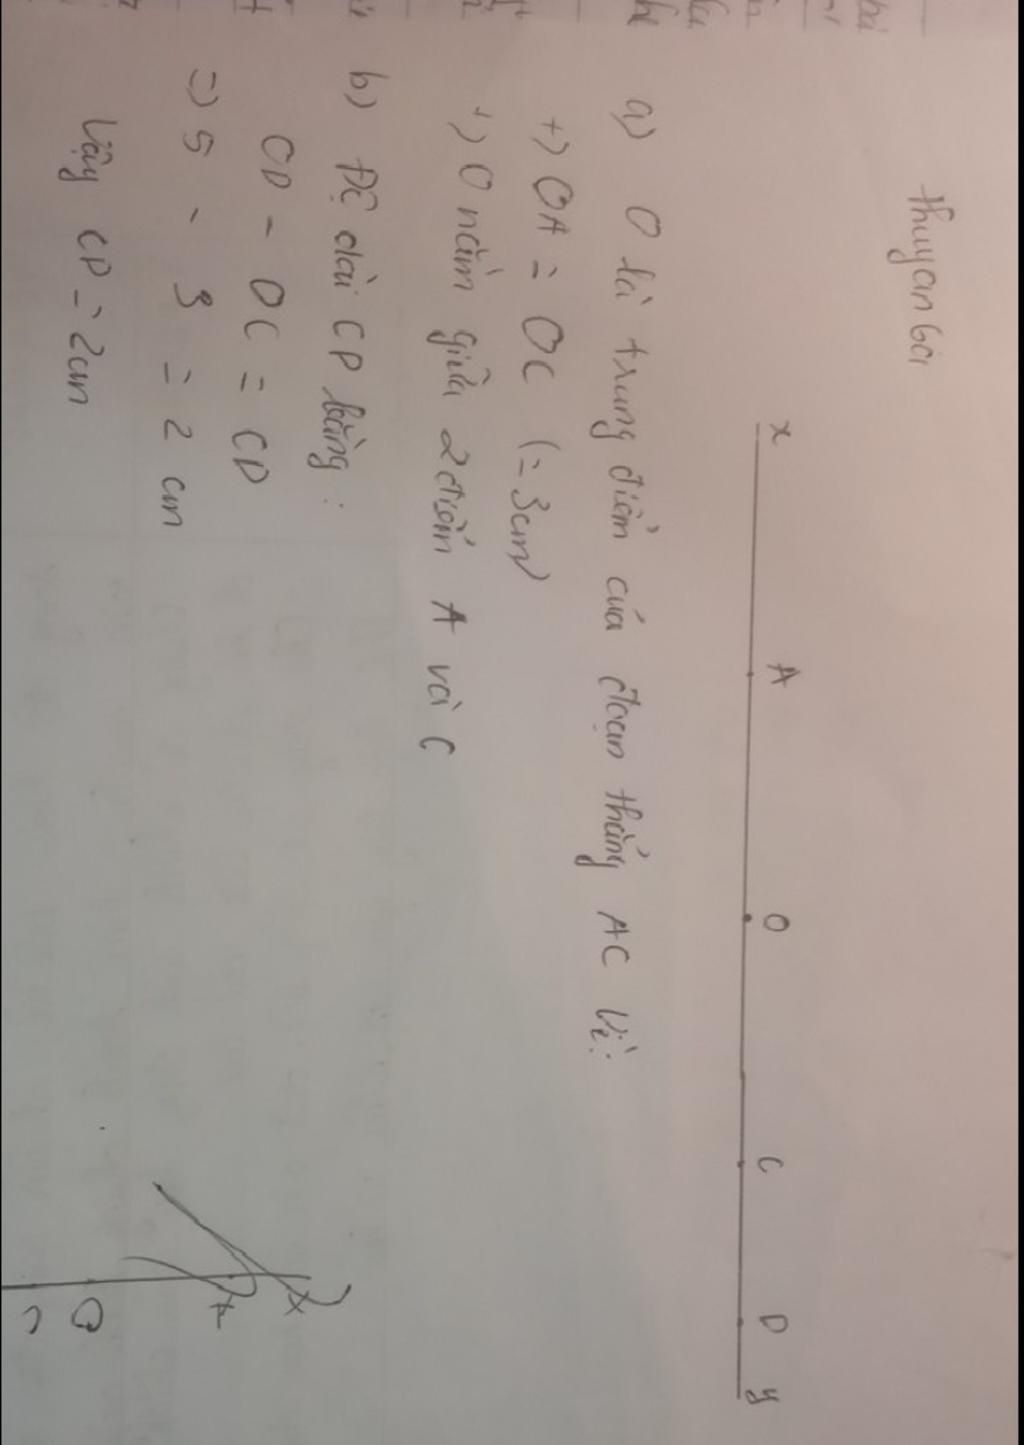 Thuy an 6a1
x A O C D y
a) O là trung điểm của đoạn thẳng AC vì:
+) OA = OC (= 3cm)
+) O nằm giữa 2 điểm A và C
b) Độ dài CD bằng:
OD - OC = CD
=> 5 - 3 = 2 cm
Vậy CD = 2cm
x
O